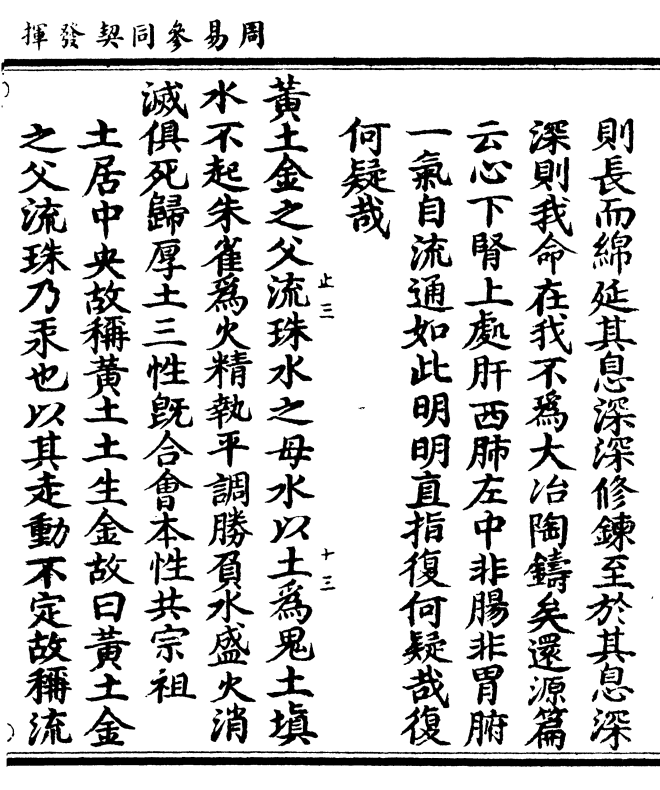 周易參同契發揮
則長而綿延其息深深修鍊至於其息深
深則我命在我不爲大冶陶鑄矣還源篇
云心下腎上處肝西肺左中非腸非胃腑
一氣自流通如此明明直指復何疑哉復
何疑哉
黃土金之父流珠水之母水以土爲鬼土塡
止三
十三
水不起朱雀爲火精執平調勝負水盛火消
滅俱死歸厚土三性旣合會本性共宗祖
土居中央故稱黃土土生金故曰黃土金
之父流珠乃汞也以其走動不定故稱流